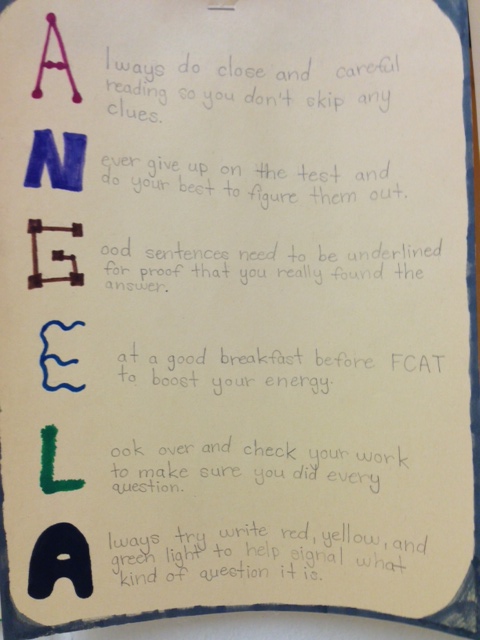 Always do close and careful
reading so you don't skip any
clues.
Never give up on the test and
do your best to figure them out.
Good sentences need to be underlined
for proof that you really found the
answer.
Eat a good breakfast before FCAT
to boost your energy.
Look over and check your work
to make sure you did every
question.
Always try write red, yellow, and
green light to help signal what
kind of question it is.